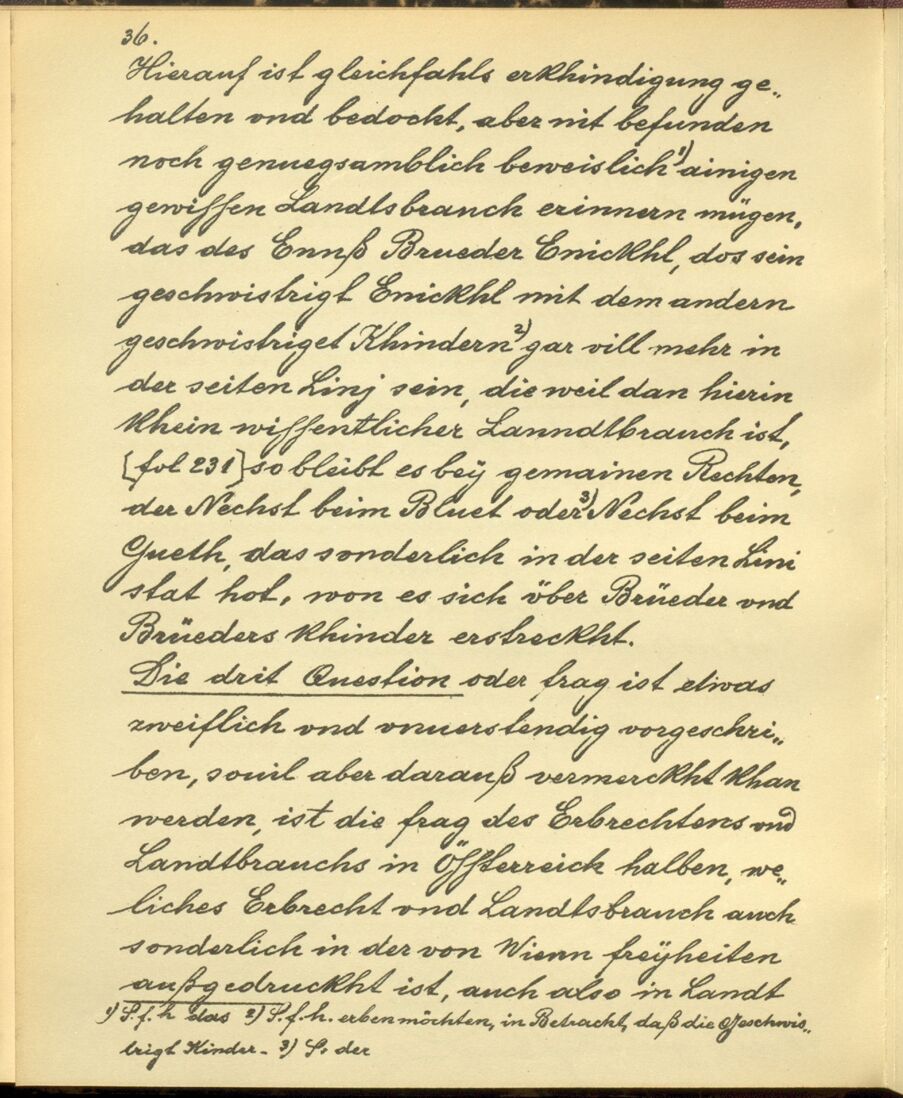 36.
Hierauf ist gleichfahls erkhindigung ge„
halten vnd bedocht, aber nit befunden
noch genuegsamblich beweislich¹⁾ ainigen
gewissen Landtsbrauch erinnern mügen,
das des Ennß Brueder Enickhl, dos sein
geschwistrigt Enickhl mit dem andern
geschwistriget Khindern²⁾ gar vill mehr in
der seiten Linj sein, die weil dan hierin
Khein wissentlicher Lanndtbrauch ist,
[fol 231] so bleibt es beÿ gemainen Rechten,
der Nechst beim Bluet oder³⁾ Nechst beim
Gueth, das sonderlich in der seiten Lini
stat hot, won es sich över Brüeder vnd
Brüeders Khinder erstreckht.
Die drit Question oder frag ist etwas
zweiflich vnd vnuerstendig vorgeschri„
ben, souil aber darauß vermerckht khan
werden, ist die frag des Erbrechtens vnd
Landtbrauchs in Össterreich halben, we„
liches Erbrecht vnd Landtsbrauch auch
sonderlich in der von Wienn freÿheiten
außgedruckht ist, auch also in Landt
¹⁾ S.f.h das ²⁾ S.f.h. erben möchten, in Betracht, daß die Geschwis„
trigt Kinder - ³⁾ S. der